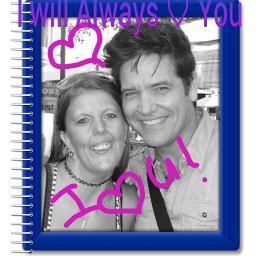 I will Always ♡ You
I ♡ U!